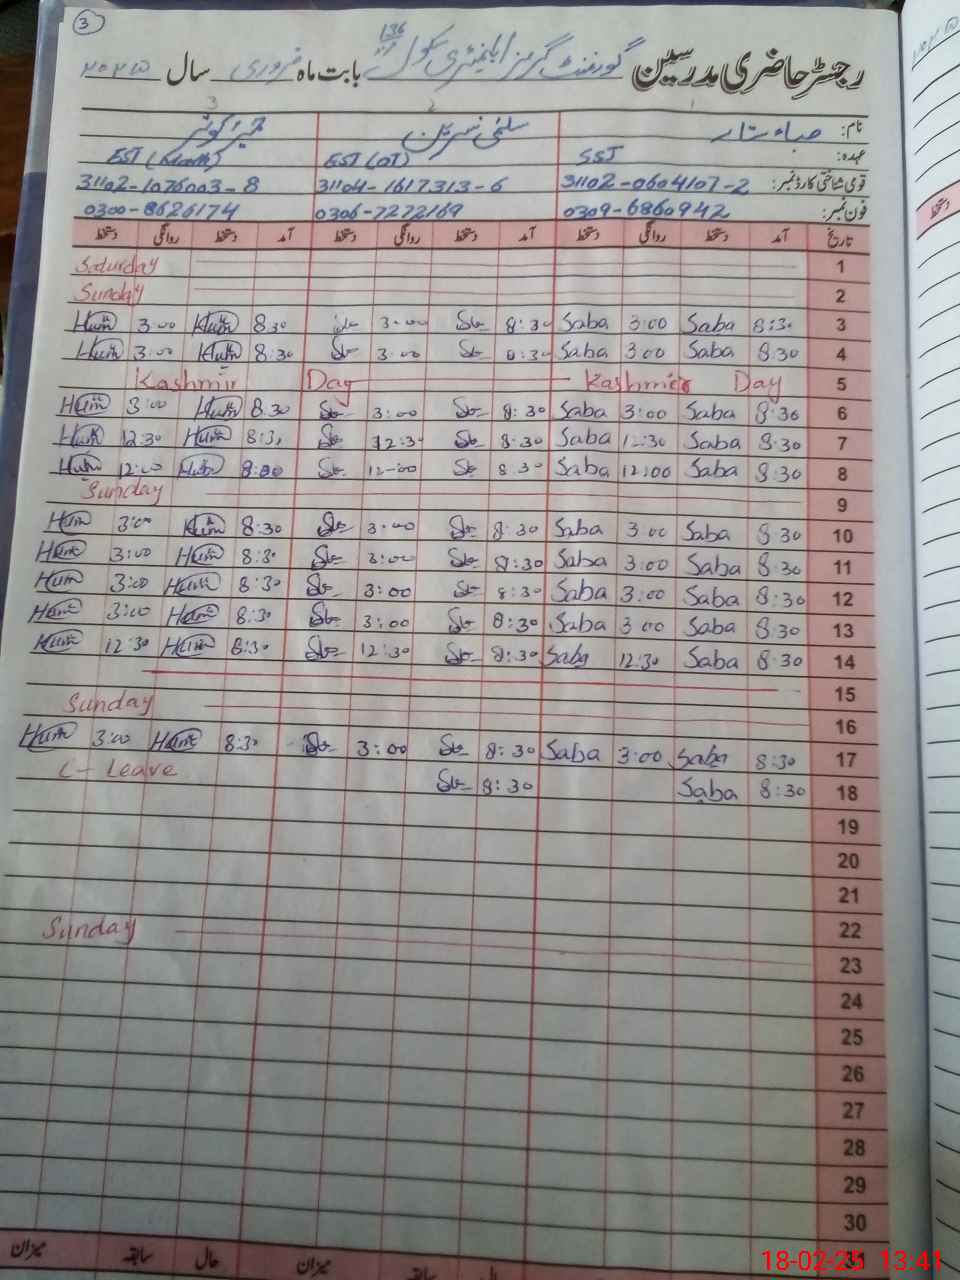 3
رجسٹر حاضری مدرسین گورنمنٹ گرلز ایلیمنٹری سکول 136 بابت ماہ فروری سال ۲۰۲۵
1 2 3
نام: صباء ستار سلمٰی نسرین حمیرا کوثر
عہدہ: SST EST (OT) EST (Math)
قومی شناختی کارڈ نمبر: 31102-0604107-2 31104-1617313-6 31102-1076003-8
فون نمبر: 0309-6860942 0306-7272169 0300-8626174
تاریخ آمد دستخط روانگی دستخط آمد دستخط روانگی دستخط آمد دستخط روانگی دستخط
Saturday 1
Sunday 2
Hum 3:00 Hum 8:30 3:00 8:30 Saba 3:00 Saba 8:30 3
Hum 3:00 Hum 8:30 3:00 8:30 Saba 3:00 Saba 8:30 4
Kashmir Day Kashmir Day 5
Hum 3:00 Hum 8:30 3:00 8:30 Saba 3:00 Saba 8:30 6
Hum 12:30 Hum 8:30 12:30 8:30 Saba 12:30 Saba 8:30 7
Hum 12:00 Hum 8:30 12:00 8:30 Saba 12:00 Saba 8:30 8
Sunday 9
Hum 3:00 Hum 8:30 3:00 8:30 Saba 3:00 Saba 8:30 10
Hum 3:00 Hum 8:30 3:00 8:30 Saba 3:00 Saba 8:30 11
Hum 3:00 Hum 8:30 3:00 8:30 Saba 3:00 Saba 8:30 12
Hum 3:00 Hum 8:30 3:00 8:30 Saba 3:00 Saba 8:30 13
Hum 12:30 Hum 8:30 12:30 8:30 Saba 12:30 Saba 8:30 14
15
Sunday 16
Hum 3:00 Hum 8:30 3:00 8:30 Saba 3:00 Saba 8:30 17
L- Leave 8:30 Saba 8:30 18
19
20
21
Sunday 22
23
24
25
26
27
28
29
30
31
میزان سابقہ حال میزان سابقہ حال
دستخط
18-02-25 13:41